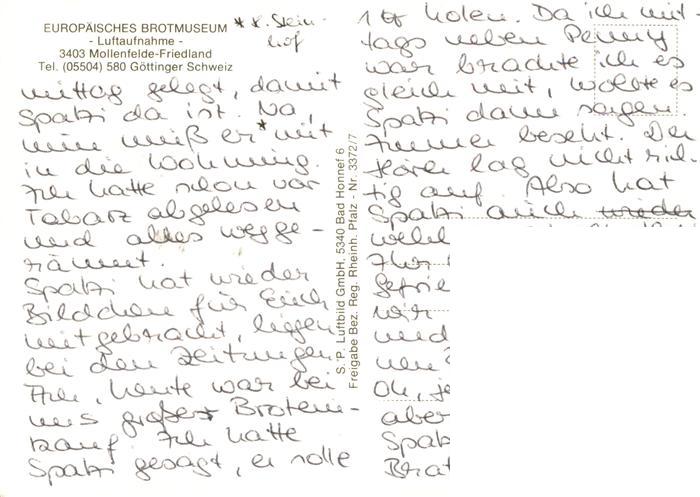 EUROPÄISCHES BROTMUSEUM
- Luftaufnahme -
3403 Mollenfelde-Friedland
Tel. (05504) 580 Göttinger Schweiz
* H. Stein-
hof
mittag gelegt, damit
Spatzi da ist. Na,
nun muß er * mit
in die Wohnung.
Ich hatte schon vor
Tabarz abgelesen
und alles wegge-
räumt.
Spatzi hat wieder
Bildchen für Euch
mitgebracht, liegen
bei den Zeitungen
Ach, heute war bei
uns großer Brotein-
kauf Ich hatte
Spatzi gesagt, er solle
S. P. Luftbild GmbH, 5340 Bad Honnef 6
Freigabe Bez. Reg. Rheinh. Pfalz - Nr. 3372/7
holen. Da ich mit
tags neben Penny
war brachte ich es
gleich mit, wollte es
Spatzi dann sagen.
Immer besetzt. Der
Hörer lag nicht rich-
tig auf. Also hat
Spatzi auch wieder
welch
Ihr
Gefrie
wir
und
nen?
Oh, je
aber
Spatz
Brot